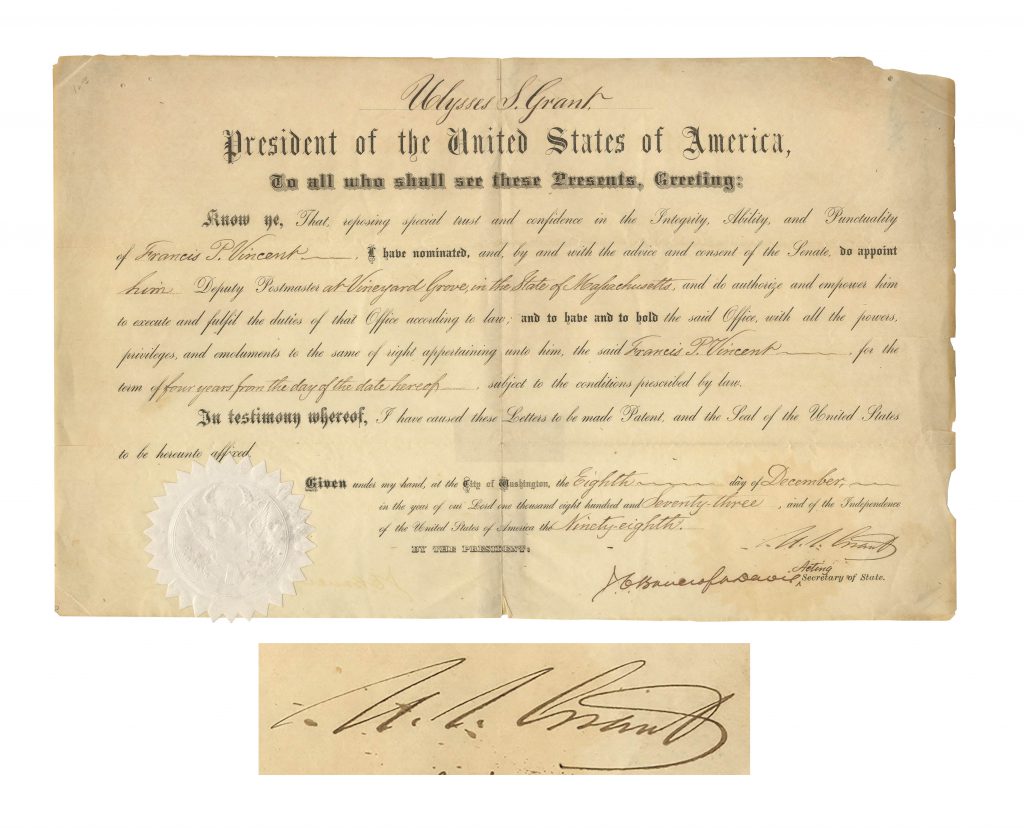 Ulysses S. Grant.
President of the United States of America,
To all who shall see these Presents, Greeting:
Know ye, That, reposing special trust and confidence in the Integrity, Ability, and Punctuality
of Francis P. Vincent, I have nominated, and, by and with the advice and consent of the Senate, do appoint
him Deputy Postmaster at Vineyard Grove, in the State of Massachusetts, and do authorize and empower him
to execute and fulfil the duties of that Office according to law; and to have and to hold the said Office, with all the powers,
privileges, and emoluments to the same of right appertaining unto him, the said Francis P. Vincent, for the
term of four years from the day of the date hereof, subject to the conditions prescribed by law.
In testimony whereof, I have caused these Letters to be made Patent, and the Seal of the United States
to be hereunto affixed.
Given under my hand, at the City of Washington, the Eighth day of December,
in the year of our Lord one thousand eight hundred and Seventy-three, and of the Independence
of the United States of America the Ninety-eighth.
U. S. Grant
BY THE PRESIDENT:
J. C. Bancroft Davis
Acting
Secretary of State.
U. S. Grant